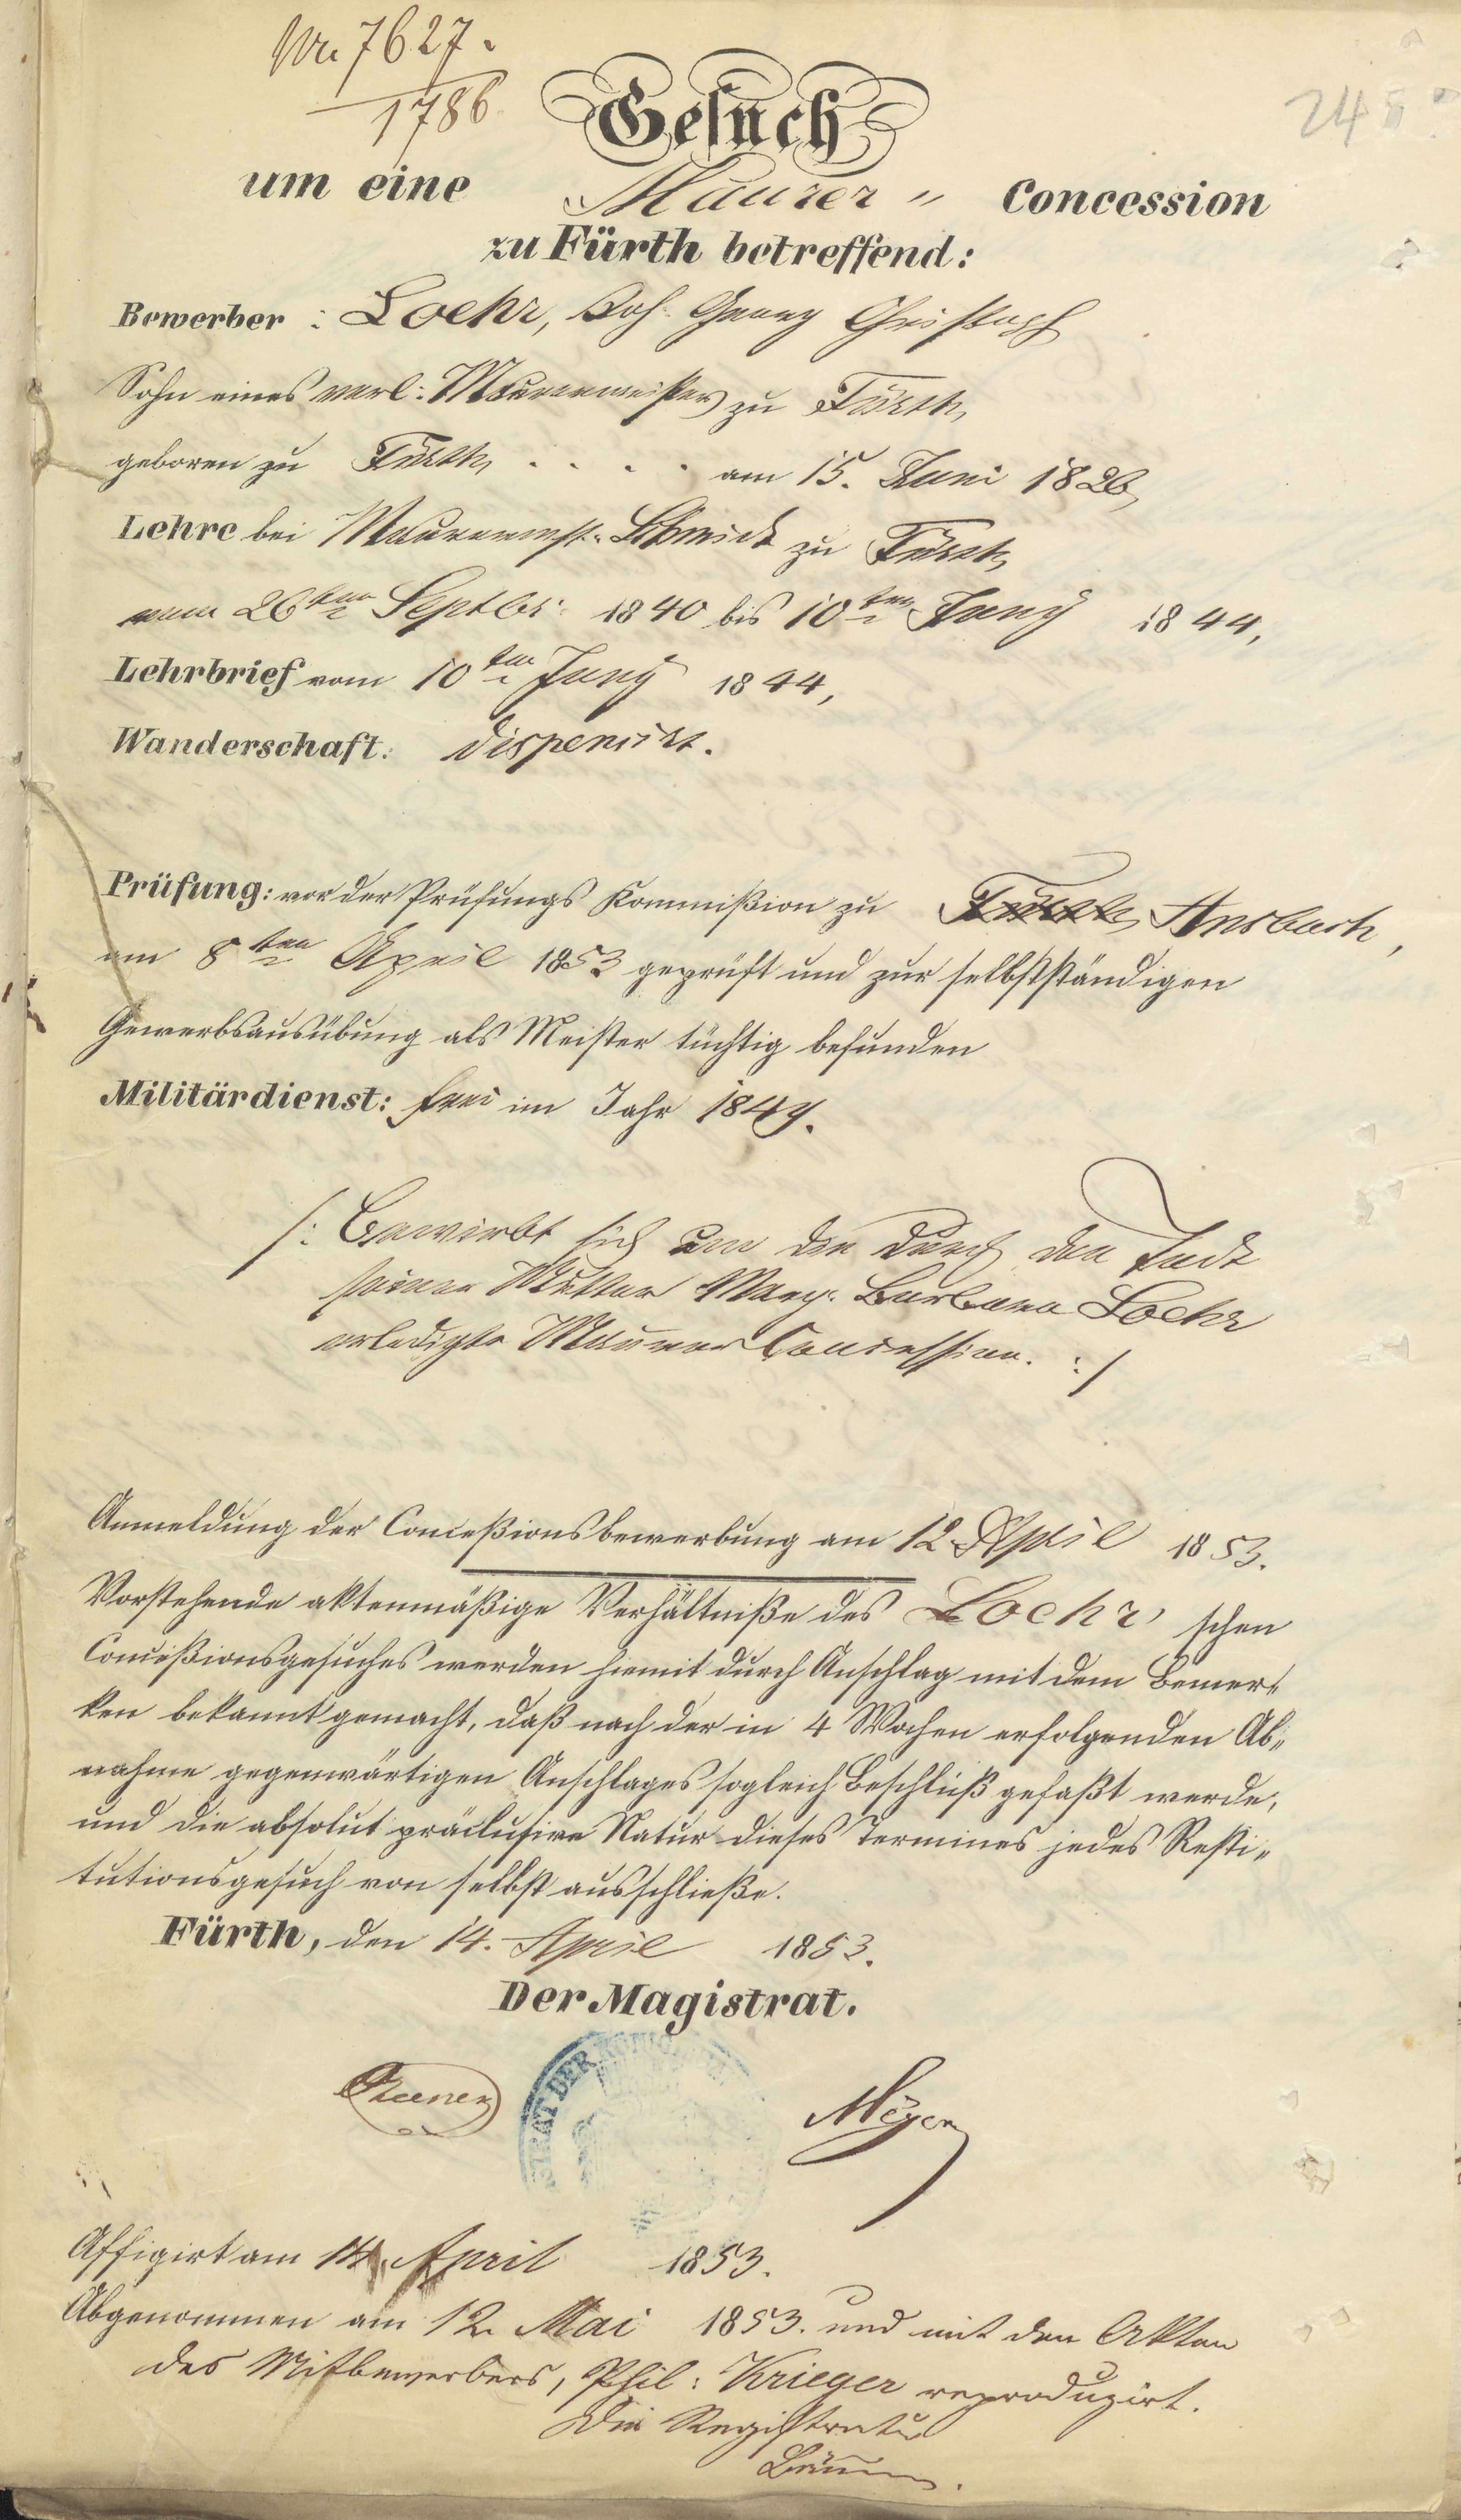 Nr. 7627.
1786
245
Gesuch
um eine Maurer " Concession
zu Fürth betreffend:
Bewerber : Loehr, Joh. Georg Christoph
Sohn eines verl: Maurermeisters zu Fürth,
geboren zu Fürth, . . . . am 15. Juni 1826,
Lehre bei Maurermst. Schmidt zu Fürth,
vom 26ten Septbr: 1840 bis 10ten Juny 1844,
Lehrbrief vom 10ten Juny 1844,
Wanderschaft: dispensirt.
Prüfung: vor der Prüfungs Kommißion zu Fürth, Ansbach,
am 8ten April 1853 geprüft und zur selbstständigen
Gewerbsausübung als Meister tüchtig befunden
Militärdienst: frei im Jahr 1847.
/: Bewirbt sich um die durch den Tod
seiner Mutter Marg. Barbara Loehr
erledigte Maurer Concession. :/
Anmeldung der Conceßionsbewerbung am 12. April 1853.
Vorstehende aktenmäßige Verhältniße des Loehr'schen
Conceßionsgesuches werden hiemit durch Anschlag mit dem Bemer-
ken bekannt gemacht, daß nach der in 4 Wochen erfolgenden Ab-
nahme gegenwärtigen Anschlages sogleich Beschluß gefaßt werde,
und die absolut präclusive Natur dieses Termines jedes Resti-
tutionsgesuch von selbst ausschließe.
Fürth, den 14. April 1853.
Der Magistrat.
STRAT DER
Meyer
Affigirt am 14. April 1853.
Abgenommen am 12. Mai 1853. und mit den Akten
des Mitbewerbers, Phil: Krieger reproduzirt.
Die Registratur